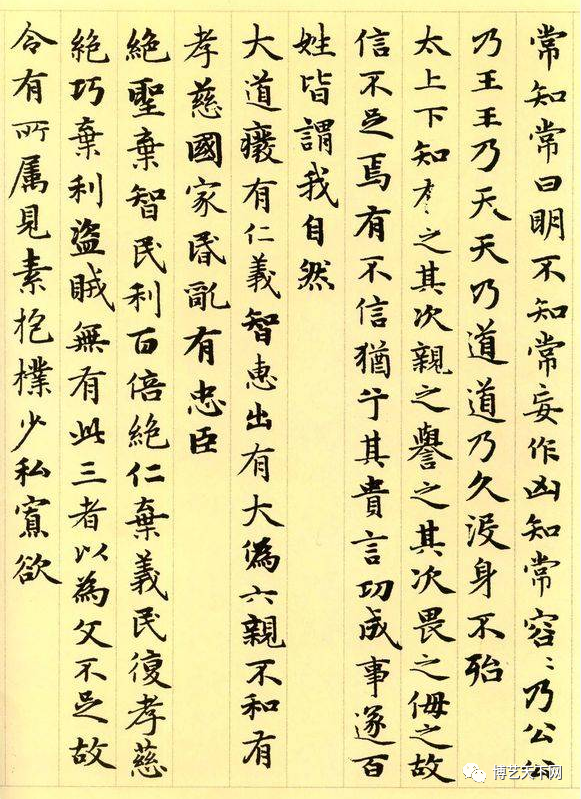 常知常曰明不知常妄作凶知常容〻乃公公
乃王王乃天天乃道道乃久没身不殆
太上下知之其次親之譽之其次畏之侮之故
信不足焉有不信猶兮其貴言功成事遂百
姓皆謂我自然
大道癈有仁義智惠出有大偽六親不和有
孝慈國家昏亂有忠臣
絕聖棄智民利百倍絕仁棄義民復孝慈
絕巧棄利盜賊無有此三者以為文不足故
令有所属見素抱樸少私寡欲
博艺天下网